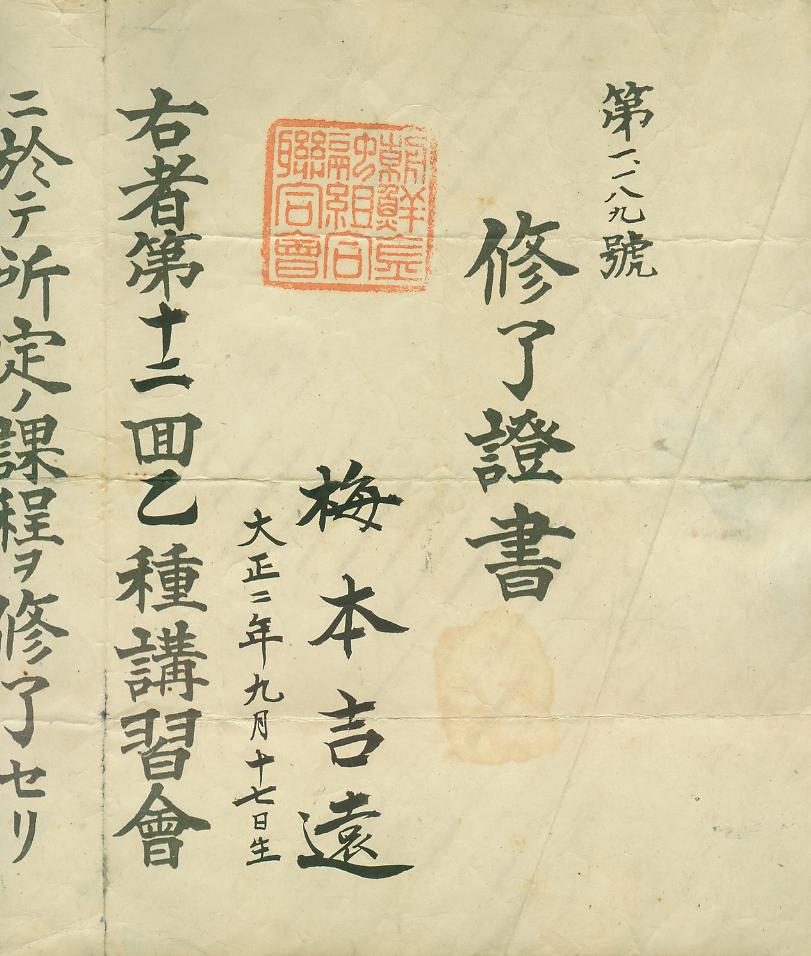 第一、一八九號
修了證書
梅本吉遠
大正二年九月十七日生
朝鮮金
融組合
聯合會
右者第十二囬乙種講習會
ニ於テ所定ノ課程ヲ修了セリ